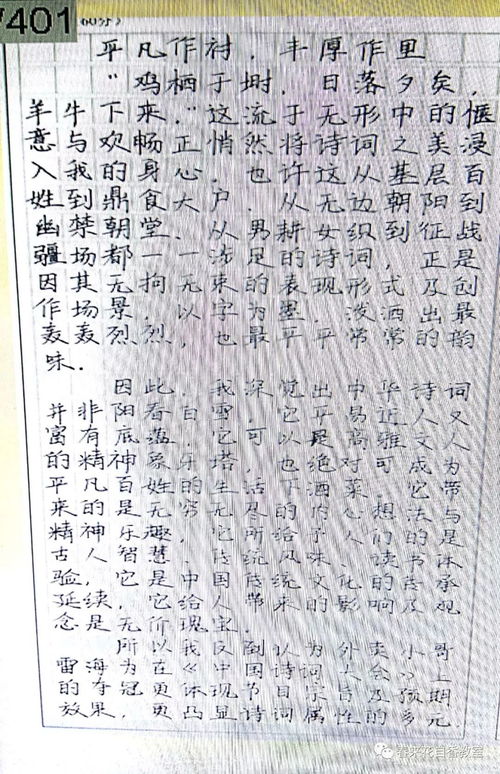 401
60分）
平凡作衬，丰厚作里
"鸡栖于埘，日落夕矣，
羊牛下来。"这流于无形中的惬
意与欢畅正悄然将诗词之美浸
入我的身心。也许这从基层百
姓到鼎食大户、从无边朝阳到
幽禁朝堂、从男耕女织到征战
疆场都一一涉足的诗词，正是
因其无拘无束的表现形式及创
作场景，以字为墨，泼洒出最
轰轰烈烈，也最平平常常的韵
味．
因此，我深觉出中华诗词
并非阳春白雪，它平易近人又
富有底蕴，它可以是高雅文人
的精神象牙塔，也绝对可成为
平凡百姓的生活下酒菜，它带
来的是无穷无尽的心想法与
精神乐趣，它所给予人们的是
古人智慧、传统风味、读书体
验，它是中国传统文化的传承
延续，它给人带来的影响及观
念是无价瑰宝。
所以我到认为外卖小哥
雷海为在《中国诗词大会》上
的夺冠更体现节目宗旨及预期
效果，更凸显诗词属性的多元